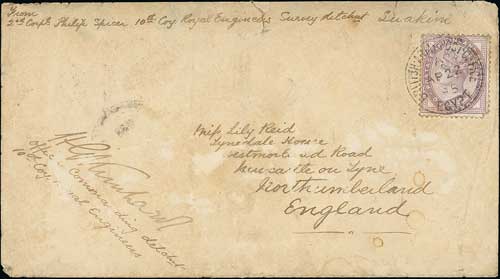 From
2nd Corpl. Philip Spicer 10th Coy Royal Engineers Survey detcht Suakim
BRITISH ARMY POST OFFICE
AP 22
85
EGYPT
Miss Lily Reid
Tynedale House
Westmorland Road
Newcastle on Tyne
Northumberland
England
Officer Commanding detcht
10th Coy Royal Engineers